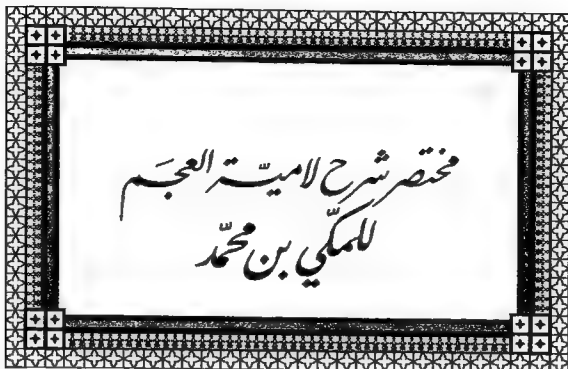 مختصر شرح لاميّة العجَم
للمكّي بن محمّد